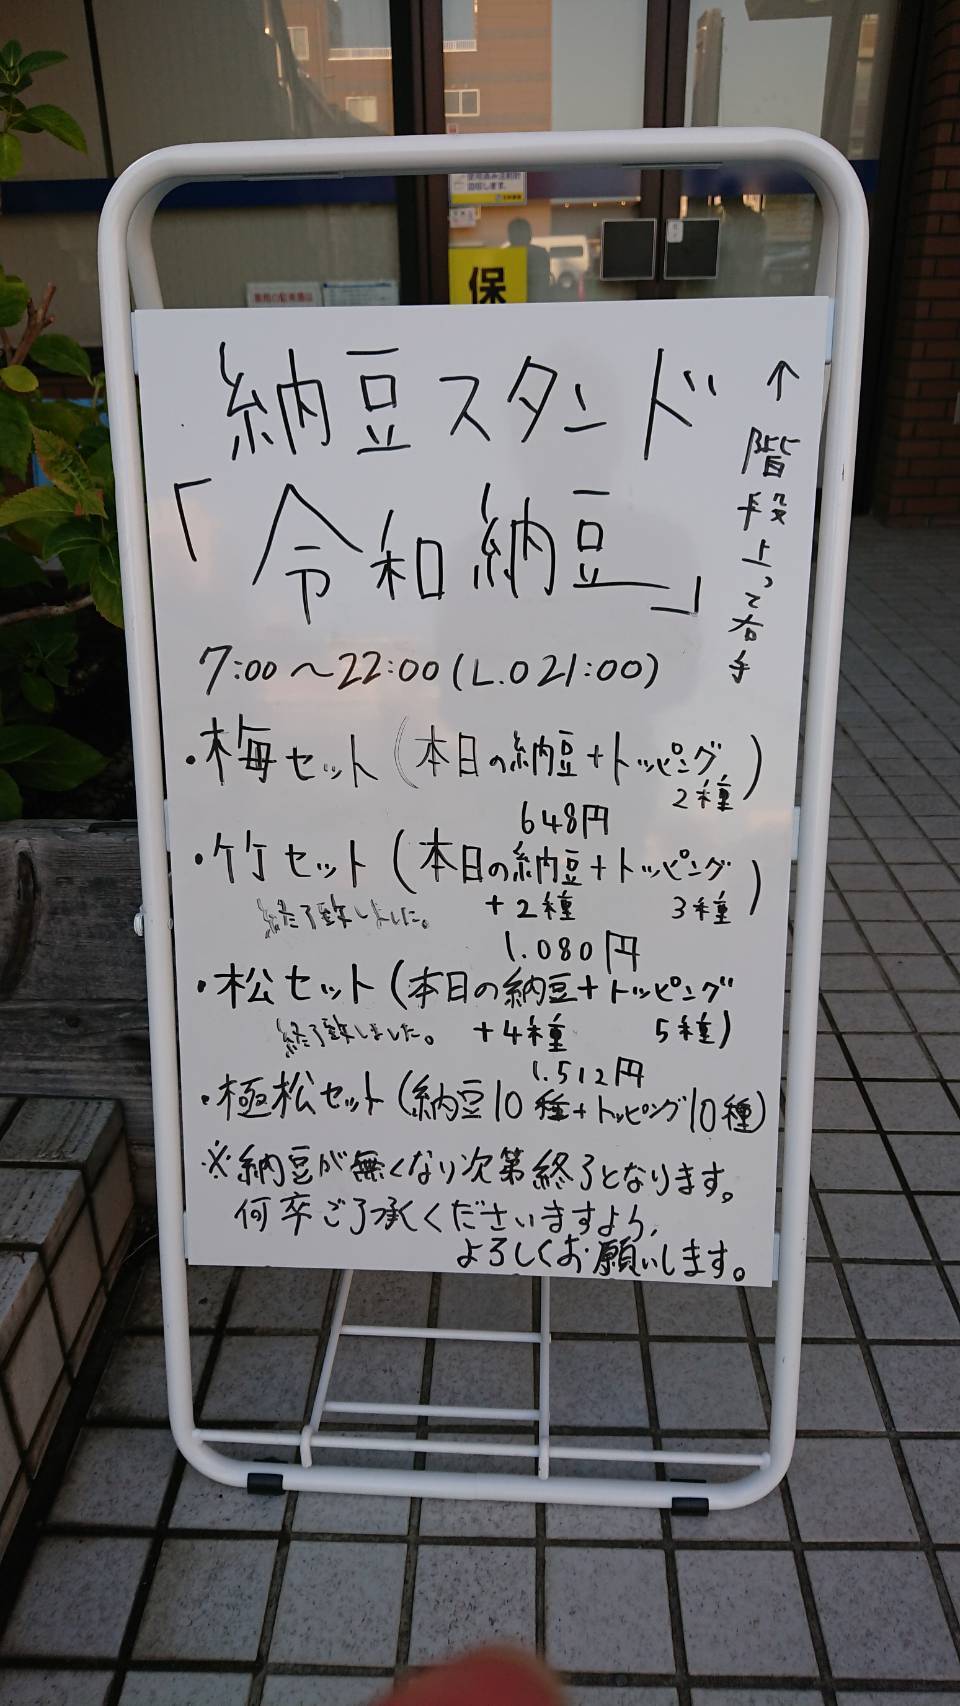 使用済み注射針
回収します。
保
納豆スタンド
「令和納豆」
↑階段上って右手
7:00〜22:00(L.O21:00)
・梅セット(本日の納豆+トッピング
2種)
648円
・竹セット(本日の納豆+トッピング
終了致しました。 +2種 3種)
1.080円
・松セット(本日の納豆+トッピング
終了致しました。 +4種 5種)
1.512円
・極松セット(納豆10種+トッピング10種)
※納豆が無くなり次第終了となります。
何卒ご了承くださいますよう、
よろしくお願いします。